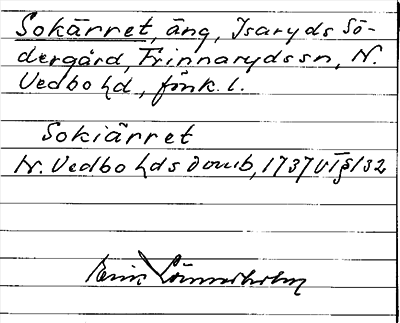 Sokärret, äng, Isaryds Sö-
dergård, Frinnarydssn, N.
Vedbo hd, Jönk. l.
Sokiärret
N. Vedbo hds domb, 1737 VT § 132